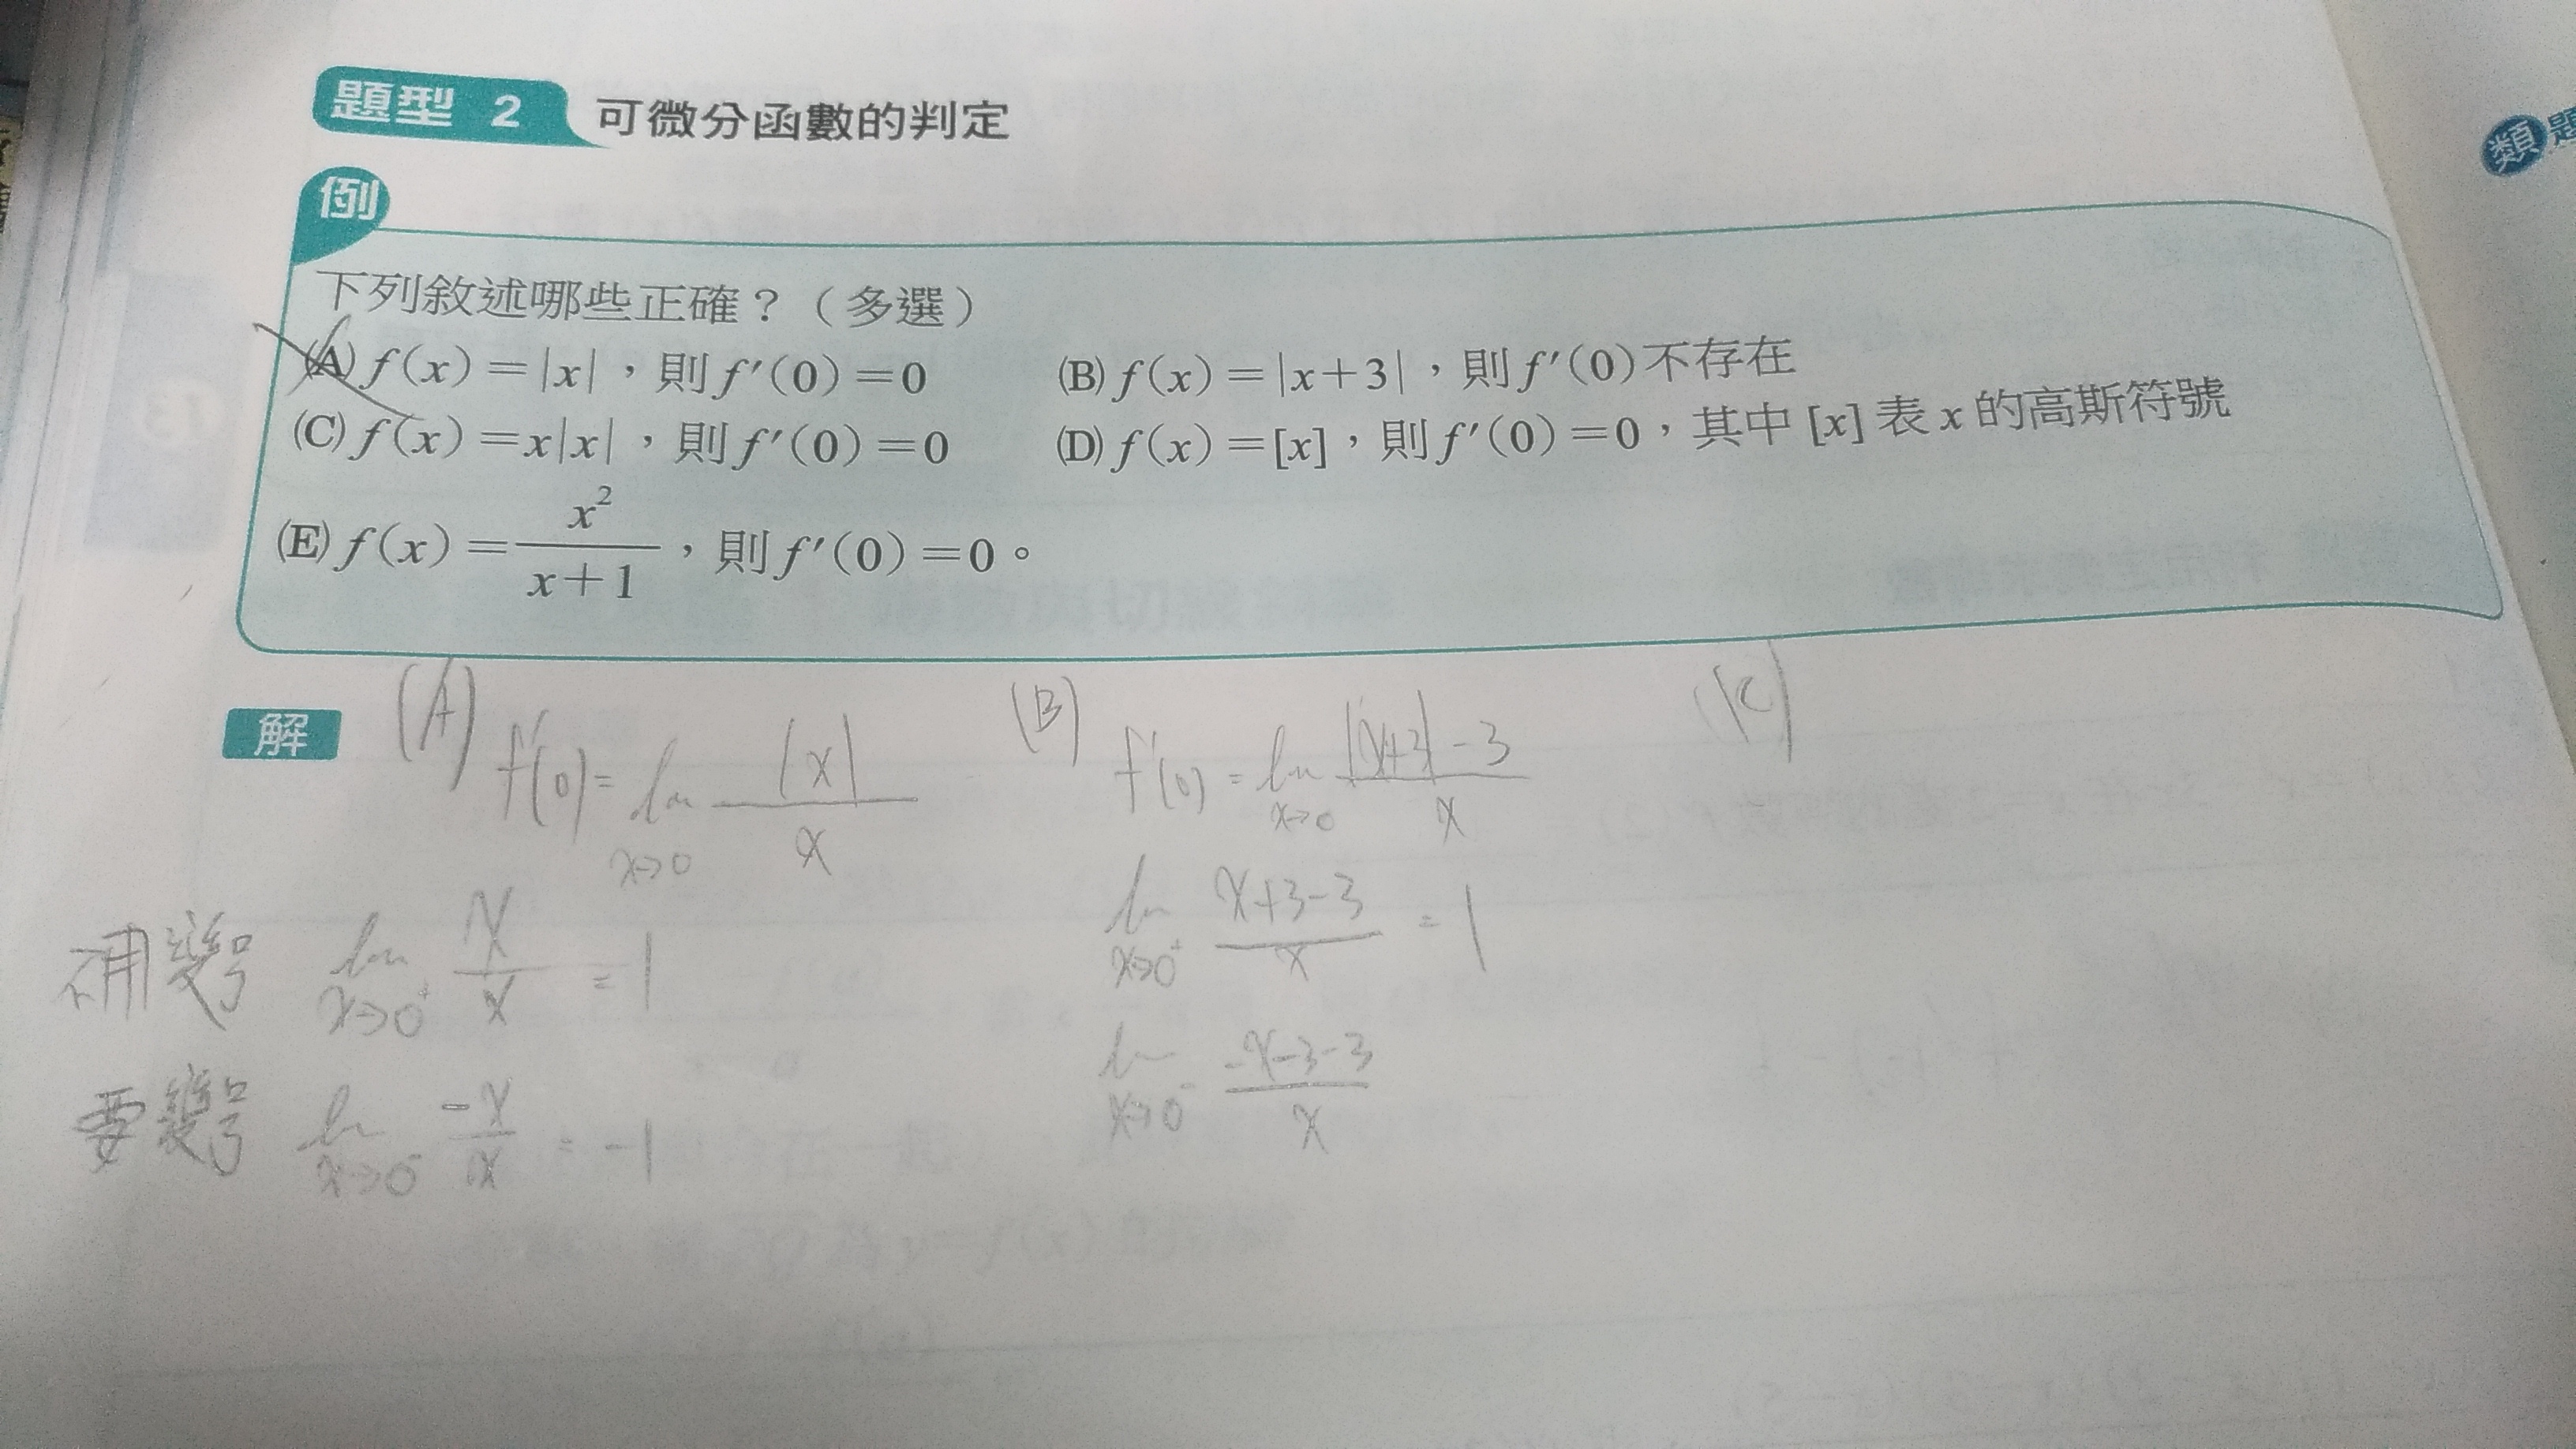 題型 2 可微分函數的判定
例
類題
下列敘述哪些正確？（多選）
(A) f(x)=|x|，則 f′(0)=0 (B) f(x)=|x+3|，則 f′(0) 不存在
(C) f(x)=x|x|，則 f′(0)=0 (D) f(x)=[x]，則 f′(0)=0，其中 [x] 表 x 的高斯符號
(E) f(x)=x²/(x+1)，則 f′(0)=0。
解
(A) f'(0)= lim x→0 |x|/x
不用變號 lim x→0⁺ x/x = 1
要變號 lim x→0⁻ -x/x = -1
(B) f'(0) = lim x→0 (|x+3|-3)/x
lim x→0⁺ (x+3-3)/x = 1
lim x→0⁻ (-x-3-3)/x
(C)